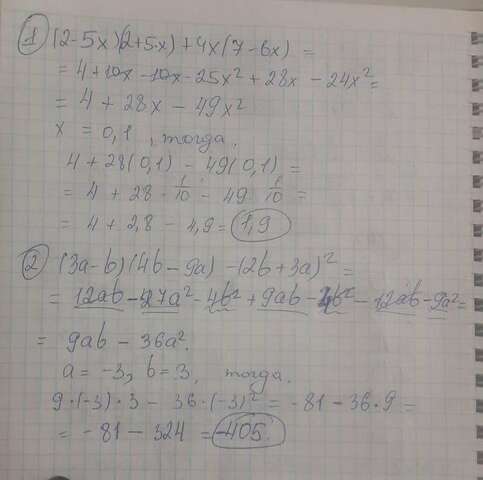 1 (2-5x)(2+5x)+4x(7-6x) =
= 4+10x-10x-25x²+28x-24x²=
= 4+28x-49x²
x = 0,1, тогда.
4+28(0,1)-49(0,1) =
= 4+28·1/10-49·1/10=
= 4+2,8-4,9=1,9
2 (3a-b)(4b-9a)-(2b+3a)²=
= 12ab-27a²-4b²+9ab-4b²-12ab-9a²=
= 9ab-36a².
a=-3, b=3, тогда.
9·(-3)·3-36·(-3)²=-81-36·9=
= -81-324=-405.